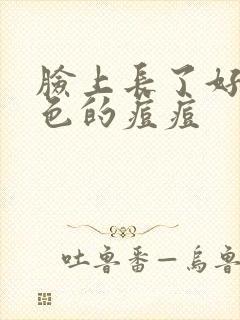 臉上長了好
色的痘痘
吐魯番－烏魯